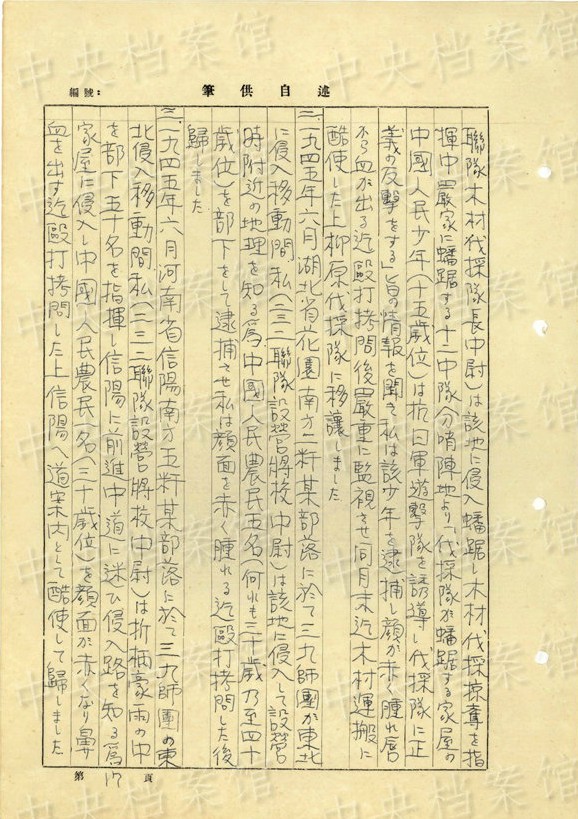 述自供筆
編號：
聯隊木材伐採隊長中尉)は該地に侵入蟠踞し木材伐採掠奪を指
揮中嚴家に蟠踞する十二中隊分哨陣地より「伐採隊が蟠踞する家屋の
中國人民少年(十五歳位)は抗日軍遊撃隊を誘導し伐採隊に正
義の反撃をする」旨の情報を聞き私は該少年を逮捕し顔が赤く腫れ唇
から血が出る迄毆打拷問後嚴重に監視させ同月末迄木材運搬に
酷使した上柳原伐採隊に移讓しました
一九四五年六月湖北省花園南方二粁某部落に於て三九師團が東北
に侵入移動間私(二三二聯隊設營將校中尉)は該地に侵入して設營
時附近の地理を知る爲中國人民農民五名(何れも三十歳乃至四十
歳位)を部下をして逮捕させ私は顔面を赤く腫れる迄毆打拷問した後
歸しました
一九四五年六月河南省信陽南方五粁某部落に於て三九師團の東
北侵入移動間私(二三二聯隊設營將校中尉)は折柄豪雨の中
を部下五十名を指揮し信陽に前進中道に迷ひ侵入路を知る爲
家屋に侵入し中國人民農民一名(三十歳位)を顔面が赤くなり鼻
血を出す迄毆打拷問した上信陽へ道案内として酷使して歸しました
第 17 頁
中央档案馆